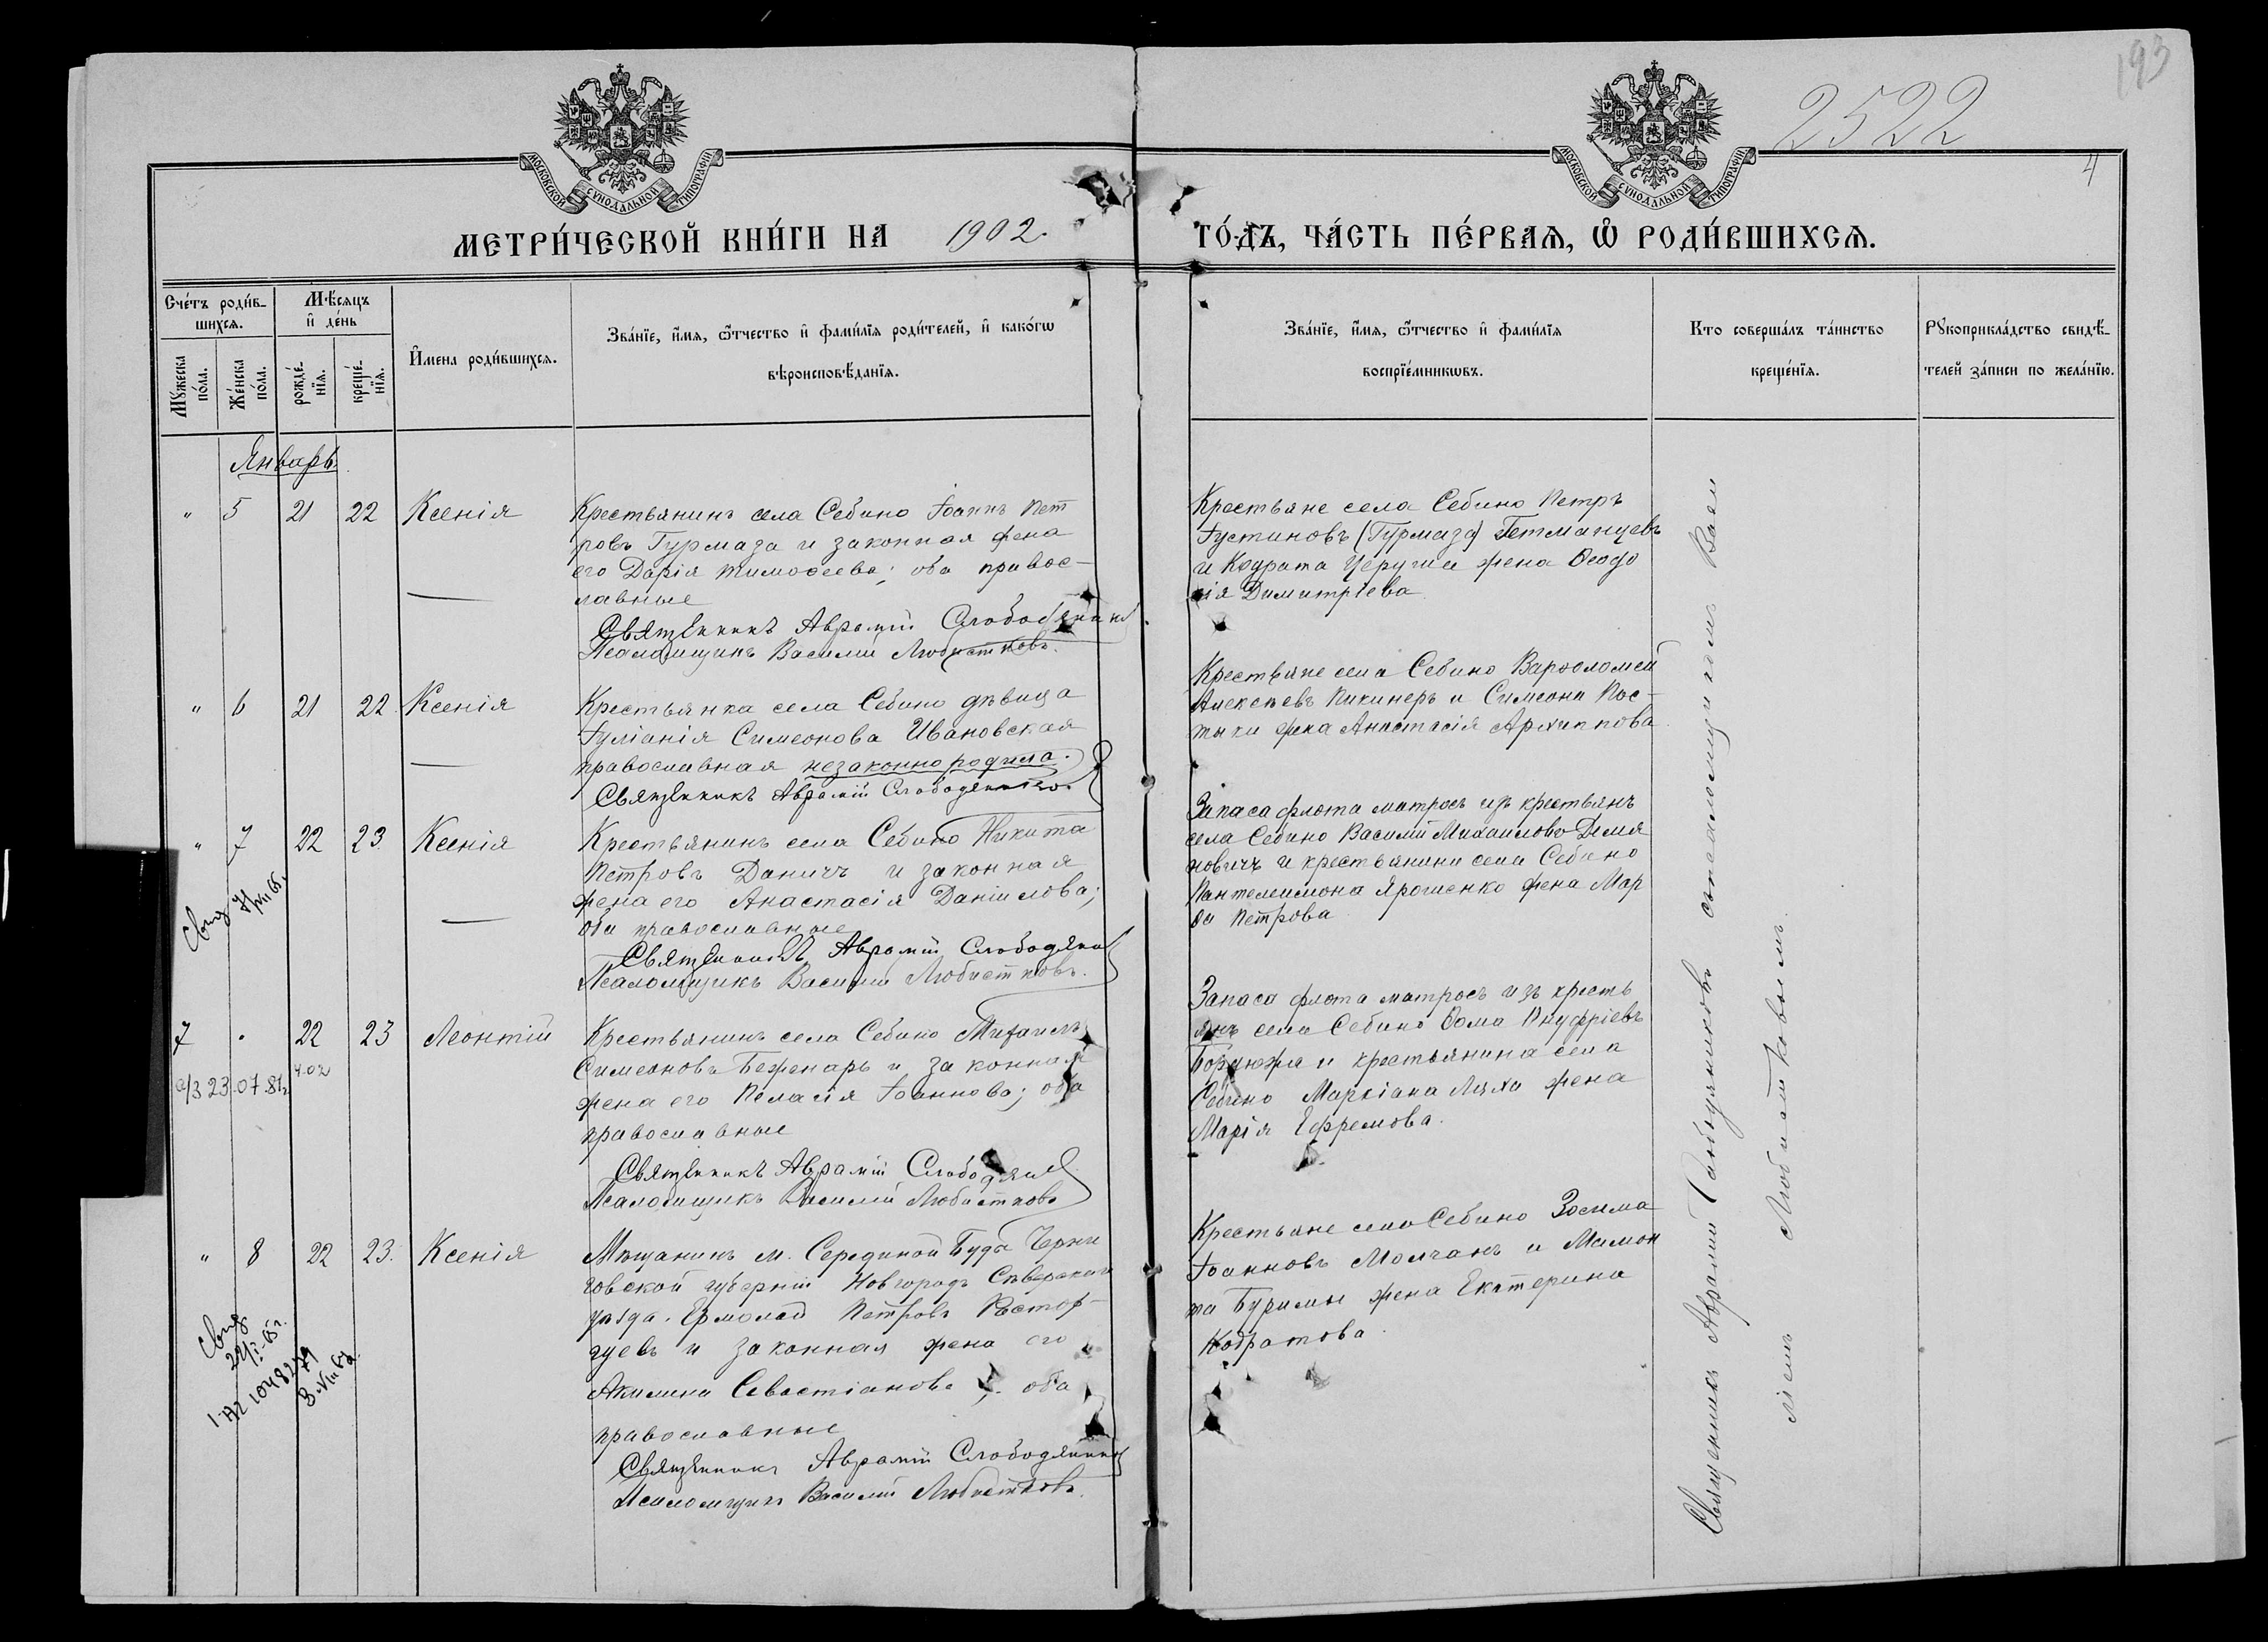 193
2522
4
МОСКОВСКОЙ СѴНОДАЛЬНОЙ ТИПОГРАФІИ
МОСКОВСКОЙ СѴНОДАЛЬНОЙ ТИПОГРАФІИ
МЕТРИ́ЧЕСКОЙ КНИ́ГИ НА 1902. ГО́ДЪ, ЧА́СТЬ ПЕ́РВАѦ, Ѡ РОДИ́ВШИХСѦ.
Сче́тъ роди́в-
шихсѧ.
Мꙋжеска по́ла.
Же́нска по́ла.
Мѣ́сѧцъ
и҆ де́нь
рожде́-
нїѧ.
креще́-
нїѧ.
И҆мена роди́вшихсѧ.
Зва́нїе, и҆́мѧ, ѻ҆́тчество и҆ фами́лїѧ роди́телей, и҆ како́гѡ
вѣроисповѣ́данїѧ.
Зва́нїе, и҆́мѧ, ѻ҆́тчество и҆ фами́лїѧ
воспрїе́мникѡвъ.
Кто соверша́лъ та́инство
креще́нїѧ.
Рꙋкоприкла́дство свидѣ́-
телей за́писи по жела́нїю.
Январь
" 5 21 22 Ксенія
Крестьянинъ села Себино Іоаннъ Пет
ровъ Гурмаза и законная жена
его Дарія Тимоѳеева; оба правос-
лавные
Священникъ Аврамій Слободяник
Псаломщикъ Василій Любистковъ.
Крестьяне села Себино Петръ
Іустиновъ (Гурмаза) Гетманцевъ
и Кодрата жена Ѳеодо
сія Димитріева
" 6 21 22 Ксенія
Крестьянка села Себино дѣвица
Іуліанія Симеонова Ивановская
православная незаконно родила.
Священникъ Аврамій Слободяников
Крестьяне села Себино Варѳоломей
Алексѣевъ Пикинеръ и Симеона Пос-
тыки жена Анастасія Архиппова
" 7 22 23 Ксенія
Крестьянинъ села Себино Никита
Петровъ Даничъ и законная
жена его Анастасія Даніилова;
оба православные
Священникъ Аврамій Слободяник
Псаломщикъ Василій Любистковъ.
Запаса флота матросъ изъ крестьянъ
села Себино Василій Михаиловъ Демя
новичъ и крестьянина села Себино
Пантелеимона Ярошенко жена Мар
ѳа Петрова
Свид
7 " 22 23 Леонтій
а/з 23.07.81г
Крестьянинъ села Себино Михаилъ
Симеоновъ Беженарь и законная
жена его Пелагія Іоаннова; оба
православные
Священникъ Аврамій Слободяник
Псаломщикъ Василій Любистковъ
Запаса флота матросъ изъ кресть
янъ села Себино Ѳома Онуфріевъ
и крестьянина села
Себино Маркіана Ляха жена
Марія Ефремова.
" 8 22 23. Ксенія
Мѣщанинъ м. Серединой Буды Черни
говской губерніи Новгородъ Сѣверскаго
уѣзда. Ермолай Петровъ Растор-
гуевъ и законная жена его
Акилина Севастіанова; оба
православные
Священникъ Аврамій Слободяник
Псаломщикъ Василій Любистковъ.
Крестьяне села Себино Зосима
Іоанновъ Молчанъ и Мамон
та Буримы жена Екатерина
Кодратова.
Свид
Священникъ Аврамій Слободяниковъ съ псаломщикомъ Васи
ліемъ Любистковымъ.